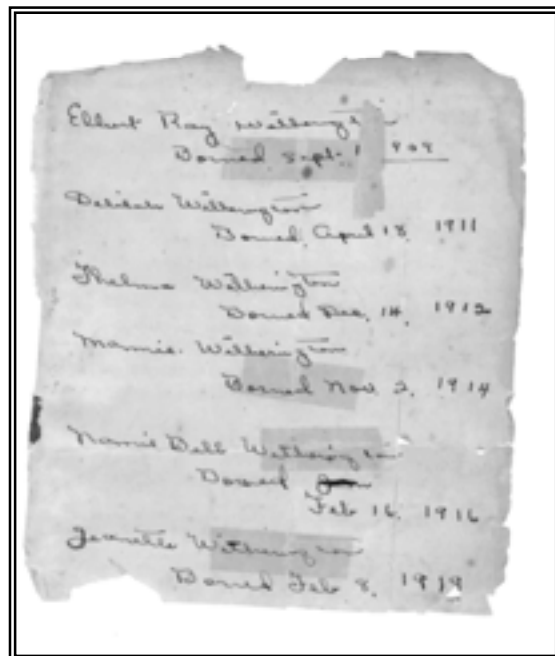 Elbert Ray Witherington
Borned Sept. 1 1909
Delilah Witherington
Borned April 18, 1911
Thelma Witherington
Borned Dec. 14, 1912
Mamie Witherington
Borned Nov 2, 1914
Nannie Dell Witherington
Borned
Feb 16, 1916
Jeanette Witherington
Borned Feb 8, 1919